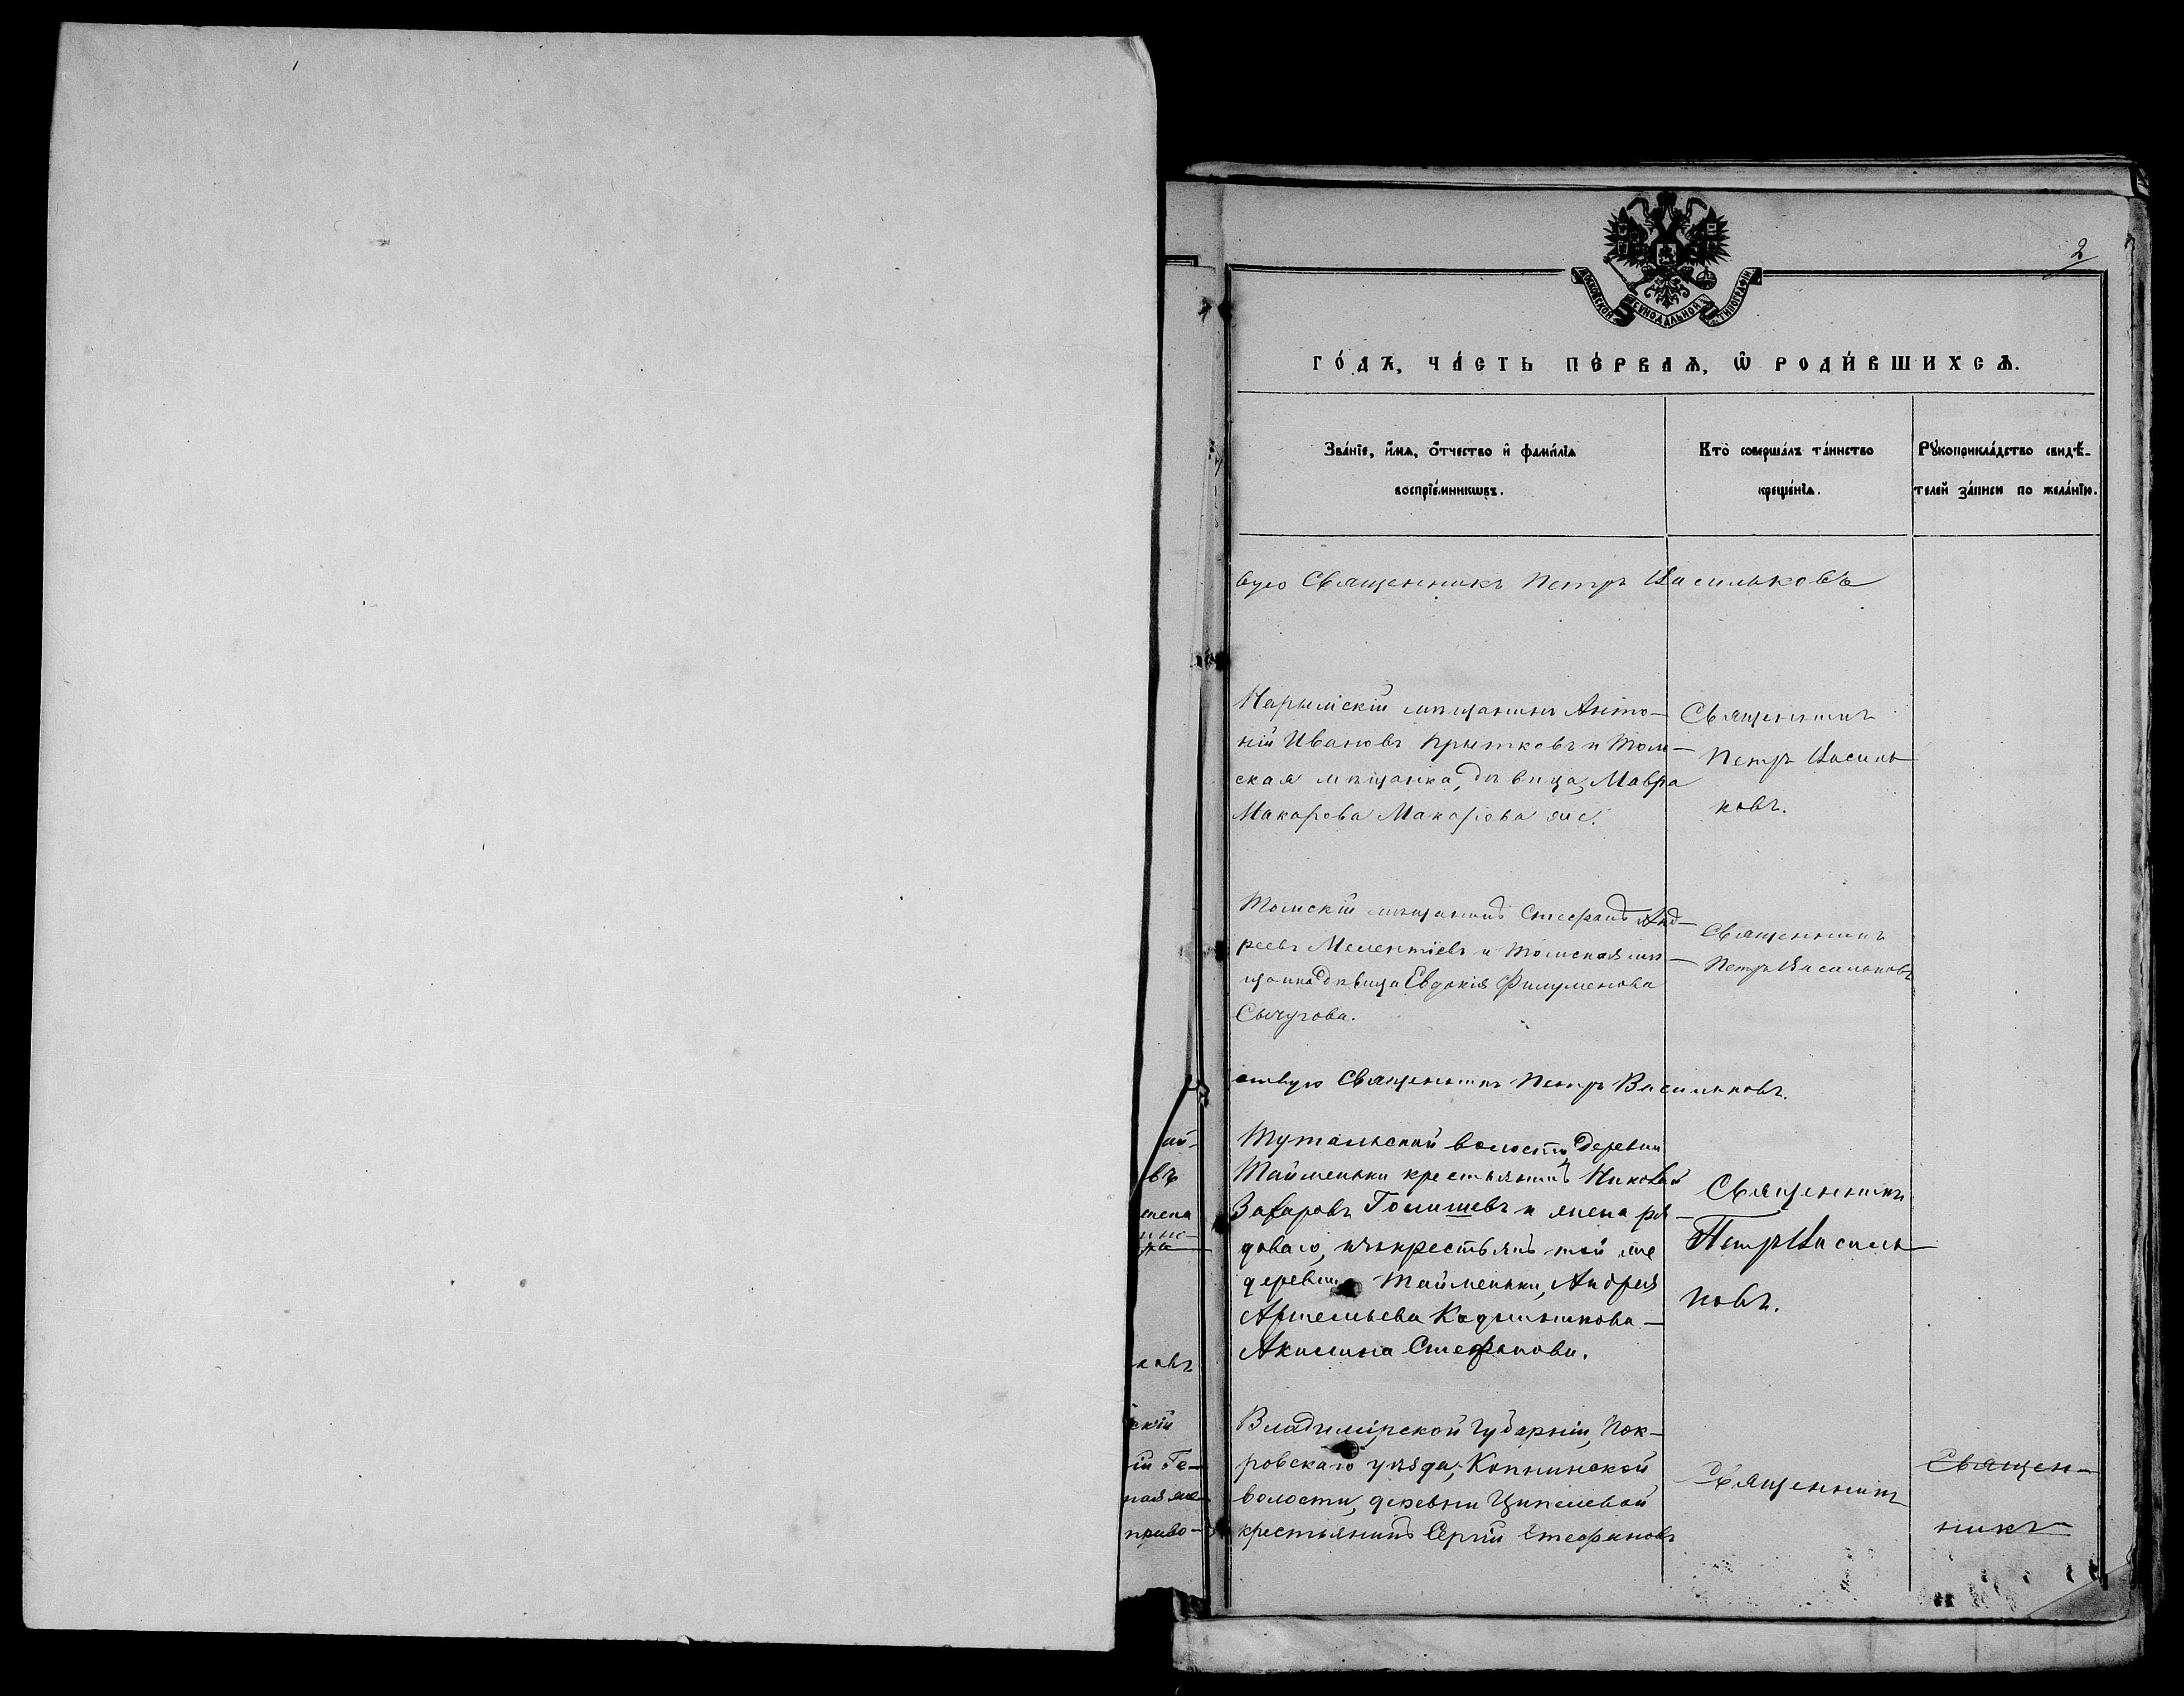 2
МОСКОВСКОЙ СѴНОДАЛЬНОЙ ТИПОГРАФІИ
го́дъ, ча́сть пе́рваѧ, ѡ҆ роди́вшихсѧ.
Зва́нїе, и҆́мѧ, ѻ҆́тчество и҆ фами́лїѧ
воспрїе́мникѡвъ.
Кто̀ соверша́лъ та́инство
креще́нїѧ.
Рꙋкоприкла́дство свидѣ́-
телей за́писи по жела́нїю.
вую Священникъ Петръ Васильковъ
Нарымскій мѣщанинъ Анто-
ній Ивановъ Прытковъ и Том-
ская мѣщанка, дѣвица, Мавра
Макарова Макарова же.
Священникъ
Петръ Василь-
ковъ.
Томскій мѣщанинъ Стефанъ Анд-
реевъ Мелентіевъ и Томская мѣ-
щанка дѣвица Евдокія Филуменова
Сычугова.
Священникъ
Петръ Васильковъ
ствую Священникъ Петръ Васильковъ.
Тутальской волости, деревни
Тайменьки крестьянинъ Николай
Захаровъ Голишевъ и жена ря-
доваго, изъ крестьянъ той же
деревни Тайменьки, Андрея
Артемьева Кадильникова-
Акилина Стефанова.
Священникъ
Петръ Василь-
ковъ.
Владимірской губерніи, Пок-
ровскаго уѣзда, Копнинской
волости, деревни Ципелевой
крестьянинъ Сергій Стефановъ
Священникъ
Священ-
никъ
ій-
въ
жена
ковъ
скій
ій Ге-
ная же-
право-